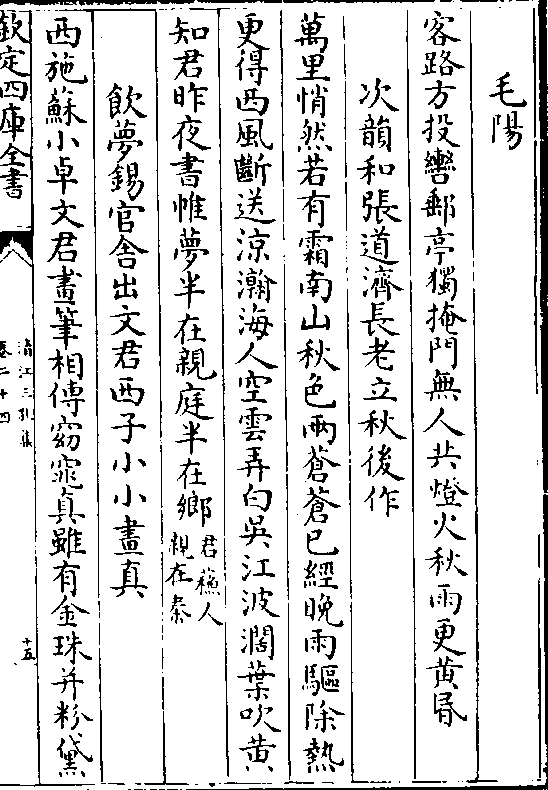 毛陽
客路方投轡郵亭獨掩門無人共燈火秋雨更黄昏
次韻和張道濟長老立秋後作
萬里悄然若有霜南山秋色兩蒼蒼已經晚雨驅除熱
更得西風斷送涼瀚海人空雲弄白吳江波濶葉吹黄
知君昨夜書帷夢半在親庭半在鄉君蘓人親在秦
飲夢錫官舍出文君西子小小畫真
西施蘇小卓文君畫筆相傳窈窕真雖有金珠并粉黛
欽定四庫全書
清江三孔集
卷二十四
十五